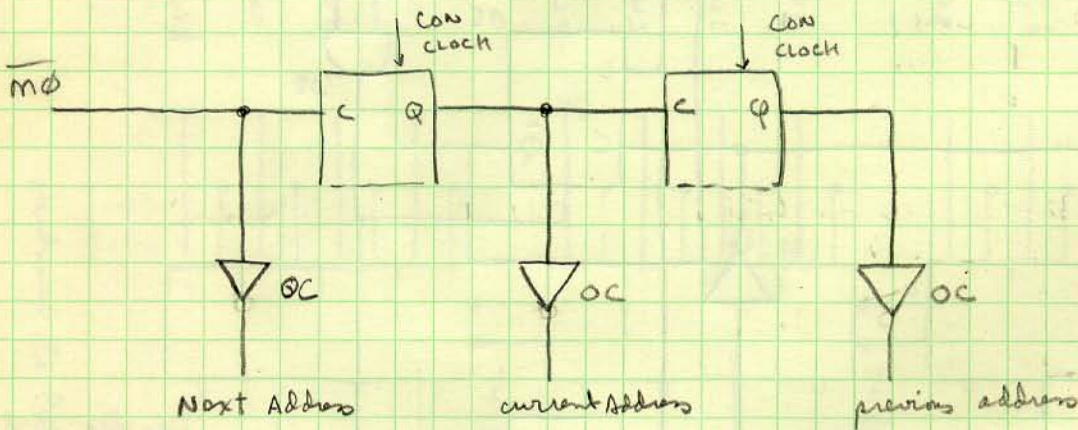 CON
CLOCK
CON
CLOCK
m̅ø̅
C Q
C Q
OC
OC
OC
Next Address
current Address
previous address